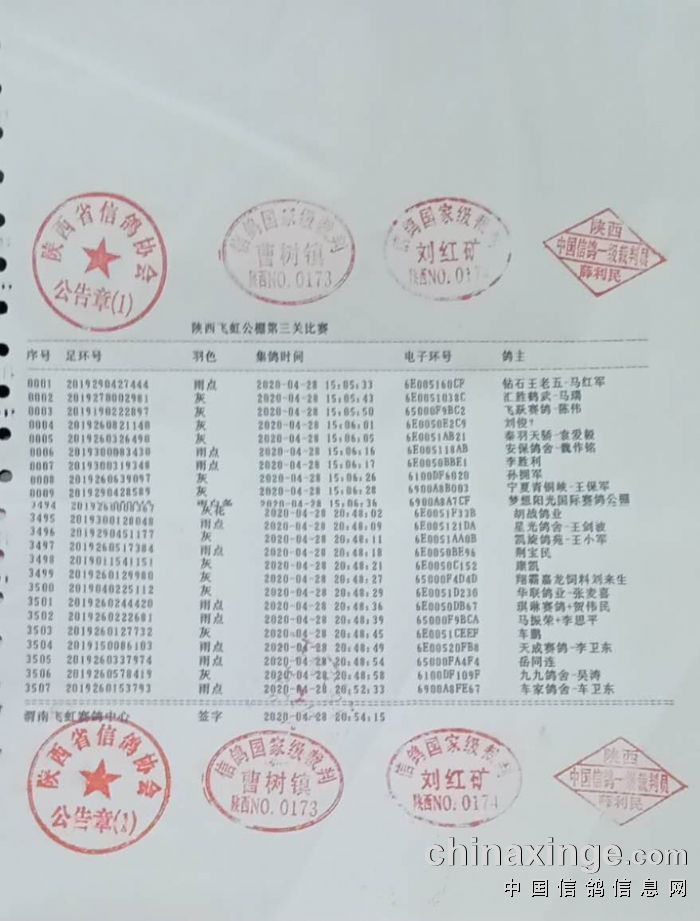 陕西省信鸽协会
公告章(1)
信鸽国家级裁判
曹树镇
陕西NO. 0173
信鸽国家级裁判
刘红矿
陕西NO. 0174
陕西
中国信鸽一级裁判员
薛利民
陕西飞虹公棚第三关比赛
序号 足环号 羽色 集鸽时间 电子环号 鸽主
0001 2019290427444 雨点 2020-04-28 15:05:33 6E005160CF 钻石王老五-马红军
0002 2019278002981 灰 2020-04-28 15:05:43 6E0051038C 汇胜鹤武-马瑞
0003 2019190222897 灰 2020-04-28 15:05:50 65000F9BC2 飞跃赛鸽-陈伟
0004 2019260821140 灰 2020-04-28 15:06:01 6E0050E2C9 刘俊?
0005 2019260326490 灰 2020-04-28 15:06:05 6E0051AB21 秦羽天骄-袁爱毅
0006 2019300083430 雨点 2020-04-28 15:06:16 6E005118AB 安保鸽舍-魏作铭
0007 2019300319348 雨点 2020-04-28 15:06:17 6E0050BBE1 李胜利
0008 2019260639097 灰 2020-04-28 15:06:26 6100DF6020 孙拥军
0009 2019290428589 灰 2020-04-28 15:06:28 6900A8B003 宁夏青铜峡-王保军
3494 灰花 2020-04-28 15:06:36 6900A8A7CF 梦想阳光国际赛鸽公棚
3495 2019300120048 雨点 2020-04-28 20:48:02 6E0051F33B 胡战鸽业
3496 2019290451177 灰 2020-04-28 20:48:09 6E005121DA 星光鸽舍-王剑波
3497 2019260517384 雨点 2020-04-28 20:48:11 6E0051AA0B 凯旋鸽苑-王小军
3498 2019011541151 灰 2020-04-28 20:48:18 6E0050BE96 荆宝民
3499 2019260129980 灰 2020-04-28 20:48:21 6E0050C152 康凯
3500 2019040225112 灰 2020-04-28 20:48:27 65000F4D4D 翔霸嘉龙饲料刘来生
3501 2019260244420 雨点 2020-04-28 20:48:29 6E0051D230 华联鸽业-张麦喜
3502 2019260222681 雨点 2020-04-28 20:48:36 6E0050DB67 琪琳赛鸽+贺伟民
3503 2019260127732 灰 2020-04-28 20:48:39 65000F9BCA 马振荣+李思平
3504 2019150086103 雨点 2020-04-28 20:48:45 6E0051CEEF 车鹏
3505 2019260337974 雨点 2020-04-28 20:48:49 6E00520FB8 天成赛鸽-李卫东
3506 2019260578419 灰 2020-04-28 20:48:54 65000FA4F4 岳同连
3507 2019260153793 雨点 2020-04-28 20:48:58 6100DF109F 九九鸽舍-吴涛
2020-04-28 20:52:33 6900A8FE67 车家鸽舍-车卫东
渭南飞虹赛鸽中心 签字 2020-04-28 20:54:15
陕西省信鸽协会
公告章(1)
信鸽国家级裁判
曹树镇
陕西NO. 0173
信鸽国家级裁判
刘红矿
陕西NO. 0174
陕西
中国信鸽一级裁判员
薛利民
chinaxinge.com
中国信鸽信息网